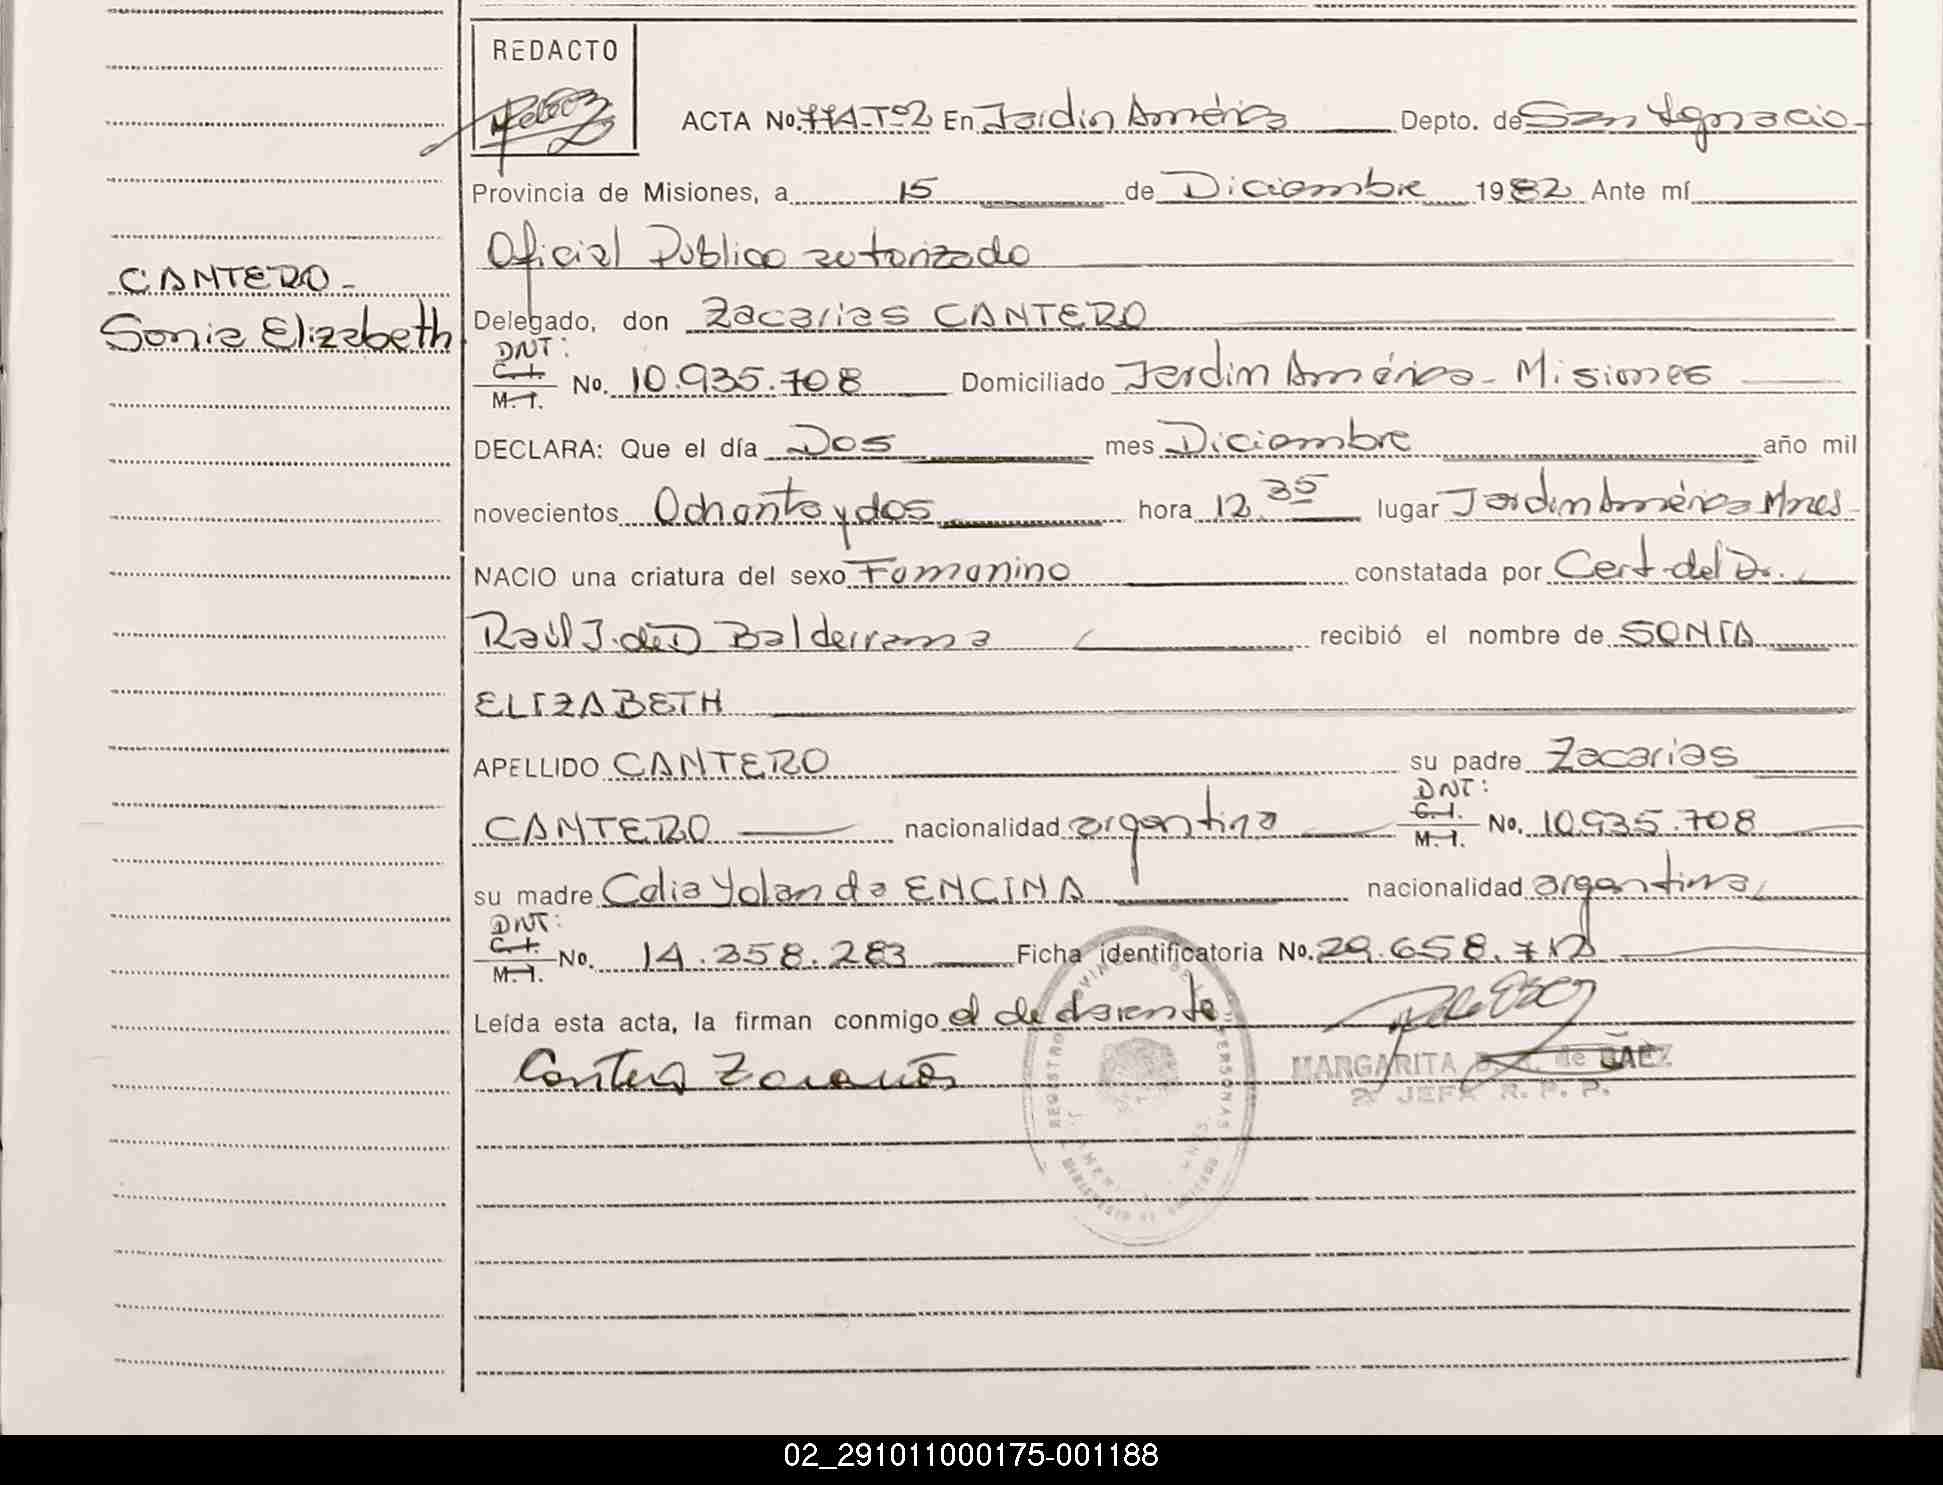 REDACTO
ACTA No. 774-Tº2 En Jardin América Depto. de San Ignacio
Provincia de Misiones, a 15 de Diciembre 1982 Ante mí
Oficial Publico autorizado
CANTERO-
Sonia Elizabeth
Delegado, don Zacarias CANTERO
DNI:
C.I.
M.I. No. 10.935.708 Domiciliado Jardin América - Misiones
DECLARA: Que el día Dos mes Diciembre año mil
novecientos Ochenta y dos hora 12,35 lugar Jardin América Mnes-
NACIO una criatura del sexo Femenino constatada por Cert-del Dr.
Raúl J. de D Balderrama recibió el nombre de SONIA
ELIZABETH
APELLIDO CANTERO su padre Zacarias
DNI:
CANTERO nacionalidad argentina C.I. M.I. No. 10.935.708
su madre Celia Yolanda ENCINA nacionalidad argentina
DNI:
C.I.
M.I. No. 14.358.283 Ficha identificatoria No. 29.658.712
Leída esta acta, la firman conmigo el declarante
Cantero Zacarias
MARGARITA de BAEZ
2ª JEFA R. P. P.
02_291011000175-001188